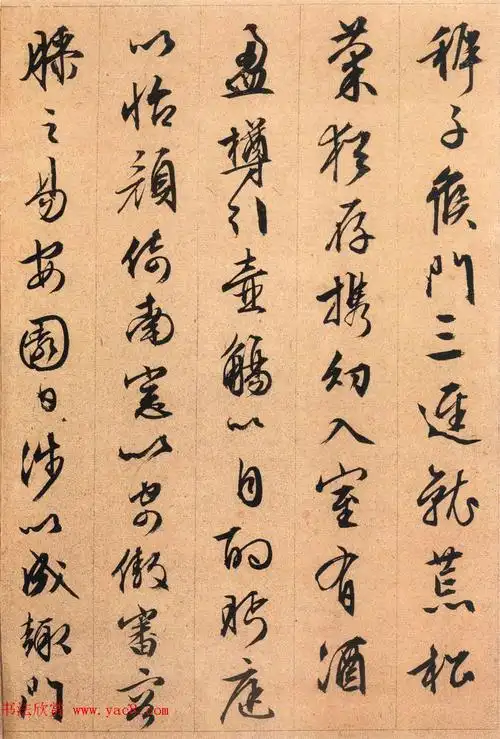 稚子候門三逕就荒松
菊猶存攜幼入室有酒
盈樽引壺觴以自酌眄庭
以怡顔倚南窓以寄傲審容
膝之易安園日涉以成趣門
书法欣赏 www.yac8.com